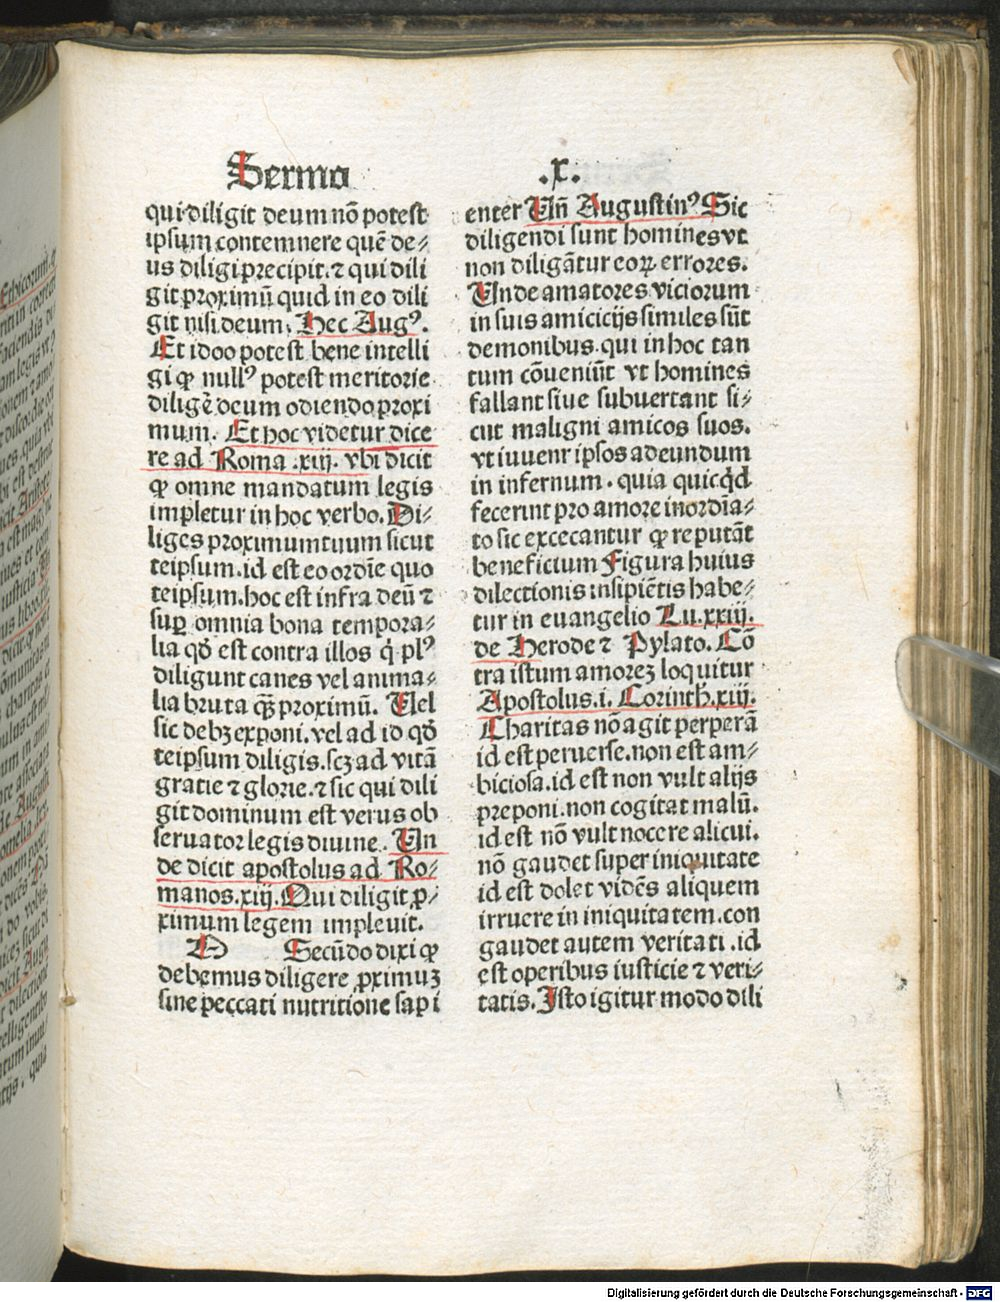 Sermo .x.
qui diligit deum nō potest
ipsum contemnere quē de⸗
us diligi precipit. ⁊ qui dili
git proximū quid in eo dili
git nisi deum. Hec Augꝰ.
Et ideo potest bene intelli
gi ꝙ nullꝰ potest meritorie
diligē deum odiendo proxi
mum. Et hoc videtur dice
re ad Roma .xiij. vbi dicit
ꝙ omne mandatum legis
impletur in hoc verbo. Di⸗
liges proximum tuum sicut
teipsum. id est eo ordīe quo
teipsum. hoc est infra deū ⁊
suꝑ omnia bona tempora⸗
lia qđ est contra illos q̇ plꝰ
diligunt canes vel anima⸗
lia bruta q̄ꝫ proximū. Uel
sic debꝫ exponi. vel ad id qđ
teipsum diligis. scꝫ ad vitā
gratie ⁊ glorie. ⁊ sic qui dili
git dominum est verus ob
seruator legis diuine. Un
de dicit apostolus ad Ro⸗
manos .xiij. Qui diligit ꝓ⸗
ximum legem impleuit.
D Secūdo dixi ꝙ
debemus diligere ꝓximuꝫ
sine peccati nutritione sapi
enter Uñ Augustinꝰ Sic
diligendi sunt homines vt
non diligātur eoꝝ errores.
Unde amatores viciorum
in suis amicicijs similes sūt
demonibus. qui in hoc tan
tum cōueniūt vt homines
fallant siue subuertant si⸗
cut maligni amicos suos.
vt iuuenr ipsos ad eundum
in infernum. quia quicq̇d
fecerint pro amore inordīa⸗
to sic excecantur ꝙ reputāt
beneficium Figura huius
dilectionis insipiētis habe⸗
tur in euangelio Lu. xxiij.
de Herode ⁊ Pylato. Cō
tra istum amoreꝫ loquitur
Apostolus .i. Corinth. xiij.
Charitas nō agit perperā
id est peruerse. non est am⸗
biciosa. id est non vult alijs
preponi. non cogitat malū.
id est nō vult nocere alicui.
nō gaudet super iniquitate
id est dolet vidēs aliquem
irruere in iniquitatem. con
gaudet autem veritati. id
est operibus iusticie ⁊ veri⸗
tatis. Isto igitur modo dili
Digitalisierung gefördert durch die Deutsche Forschungsgemeinschaft - DFG